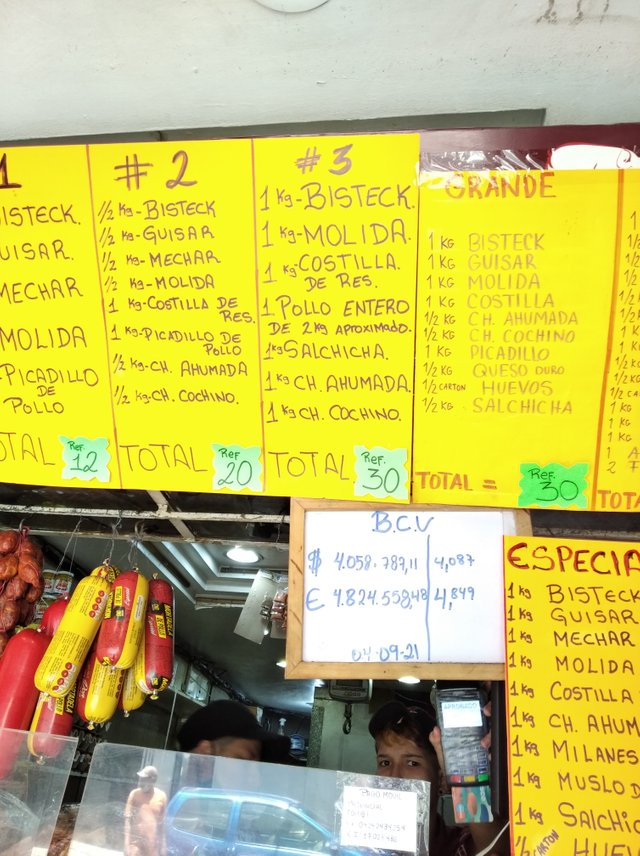 1
BISTECK.
GUISAR.
MECHAR
MOLIDA
PICADILLO
DE
POLLO
TOTAL
Ref
12
# 2
1/2 Kg-BISTECK
1/2 Kg-GUISAR
1/2 Kg-MECHAR
1/2 Kg-MOLIDA
1 Kg-COSTILLA DE
RES.
1 Kg-PICADILLO DE
POLLO
1/2 Kg-CH. AHUMADA
1/2 Kg-CH. COCHINO.
TOTAL
Ref
20
# 3
1 Kg-BISTECK.
1 Kg-MOLIDA.
1 Kg-COSTILLA.
DE RES.
1 POLLO ENTERO
DE 2Kg APROXIMADO.
1Kg SALCHICHA.
1 Kg CH. AHUMADA.
1 Kg CH. COCHINO.
TOTAL
Ref.
30
GRANDE
1 KG BISTECK
1 KG GUISAR
1 KG MOLIDA
1 KG COSTILLA
1/2 KG CH. AHUMADA
1/2 KG CH. COCHINO
1 KG PICADILLO
1/2 KG QUESO DURO
1/2 CARTON HUEVOS
1/2 KG - SALCHICHA
TOTAL =
Ref.
30
B.C.V
$ 4.058.787,11 4,087
€ 4.824.558,48 4,849
04-09-21
ESPECIA
1 Kg BISTECK
1 Kg GUISAR
1 Kg MECHAR
1 Kg MOLIDA
1 Kg COSTILLA
1 Kg CH. AHUM
1 Kg MILANES
1 Kg MUSLO D
1 Kg SALCHIC
1/2 CARTON HUEV
APROBADO
PAGO MOVIL